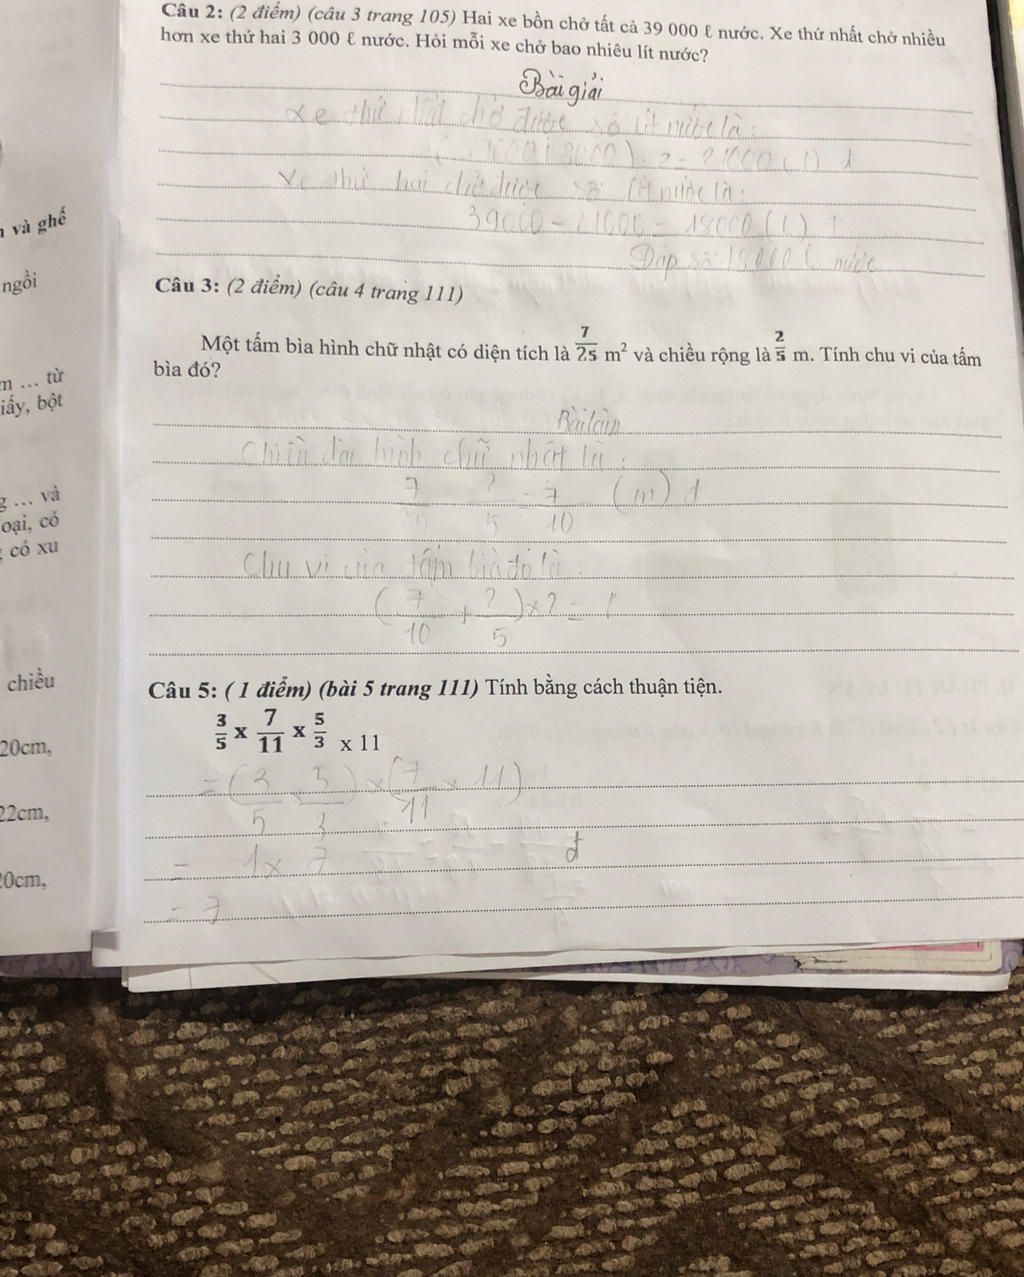 Câu 2: (2 điểm) (câu 3 trang 105) Hai xe bồn chở tất cả 39 000 ℓ nước. Xe thứ nhất chở nhiều
hơn xe thứ hai 3 000 ℓ nước. Hỏi mỗi xe chở bao nhiêu lít nước?
Bài giải
Xe thứ nhất chở được số lít nước là:
(39000+3000):2=21000(l) đ
Xe thứ hai chở được số lít nước là:
39000-21000=18000(l)
Đáp số: 18000 l nước
Câu 3: (2 điểm) (câu 4 trang 111)
Một tấm bìa hình chữ nhật có diện tích là 7/25 m² và chiều rộng là 2/5 m. Tính chu vi của tấm
bìa đó?
Bài làm
Chiều dài hình chữ nhật là:
7/25 : 2/5 = 7/10 (m) đ
Chu vi của tấm bìa đó là:
(7/10 + 2/5) x 2 =
Câu 5: ( 1 điểm) (bài 5 trang 111) Tính bằng cách thuận tiện.
3/5 x 7/11 x 5/3 x 11
= (3/5 x 5/3) x (7/11 x 11)
= 1 x 7 đ
= 7
và ghế
ngồi
… từ
giấy, bột
… và
loại, có
có xu
chiều
20cm,
22cm,
20cm,